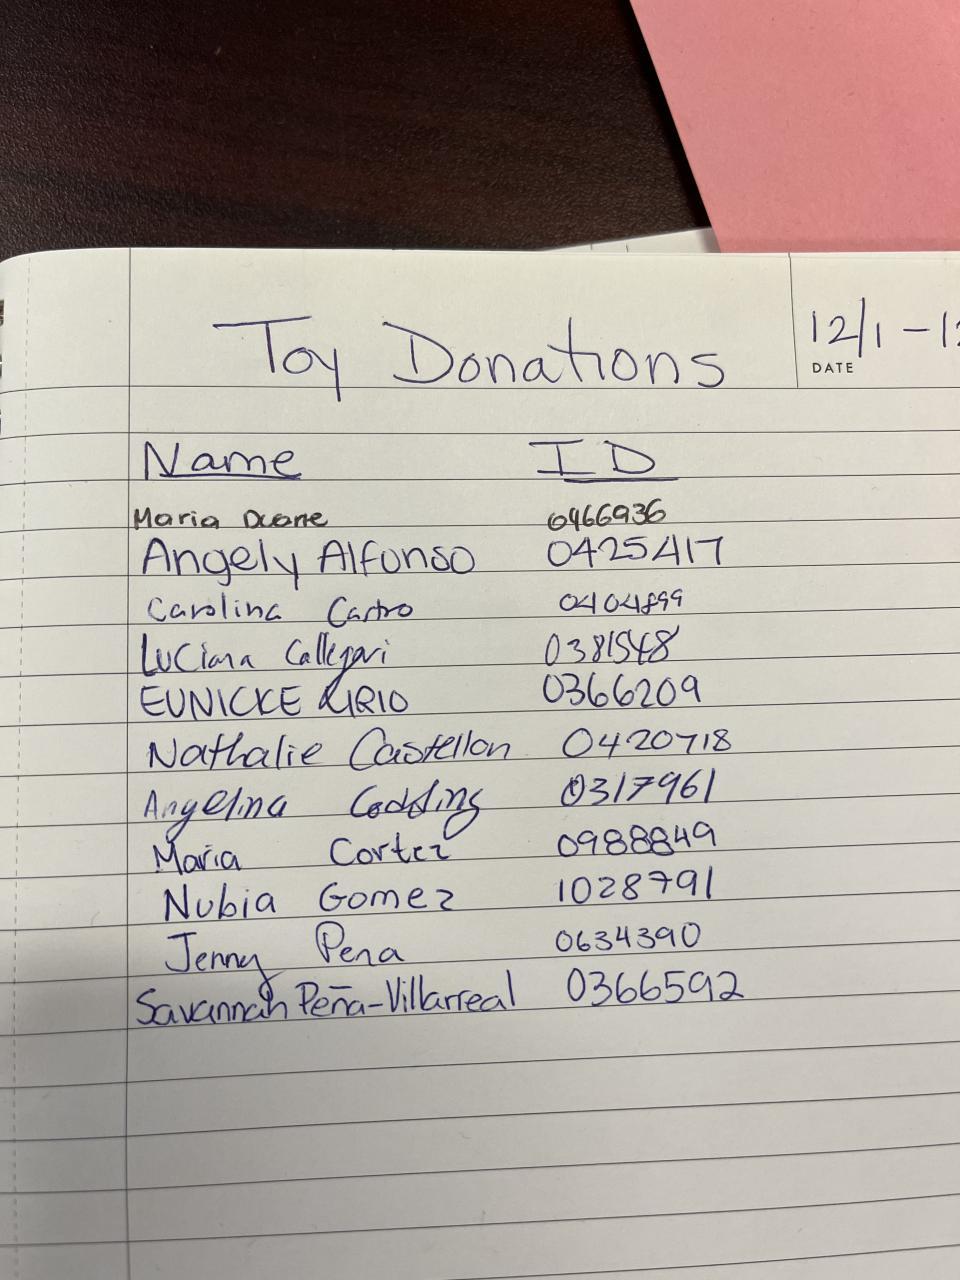 Toy Donations
12/1 - 12
DATE
Name ID
Maria Duane 0466936
Angely Alfonso 0425417
Carolina Castro 0404899
Luciana Callegari 0381548
EUNICKE 0366209
Nathalie Castellon 0420718
Angelina 0317961
Maria Cortez 0988849
Nubia Gomez 1028791
Jenny Pena 0634390
Savannah Peña-Villarreal 0366592